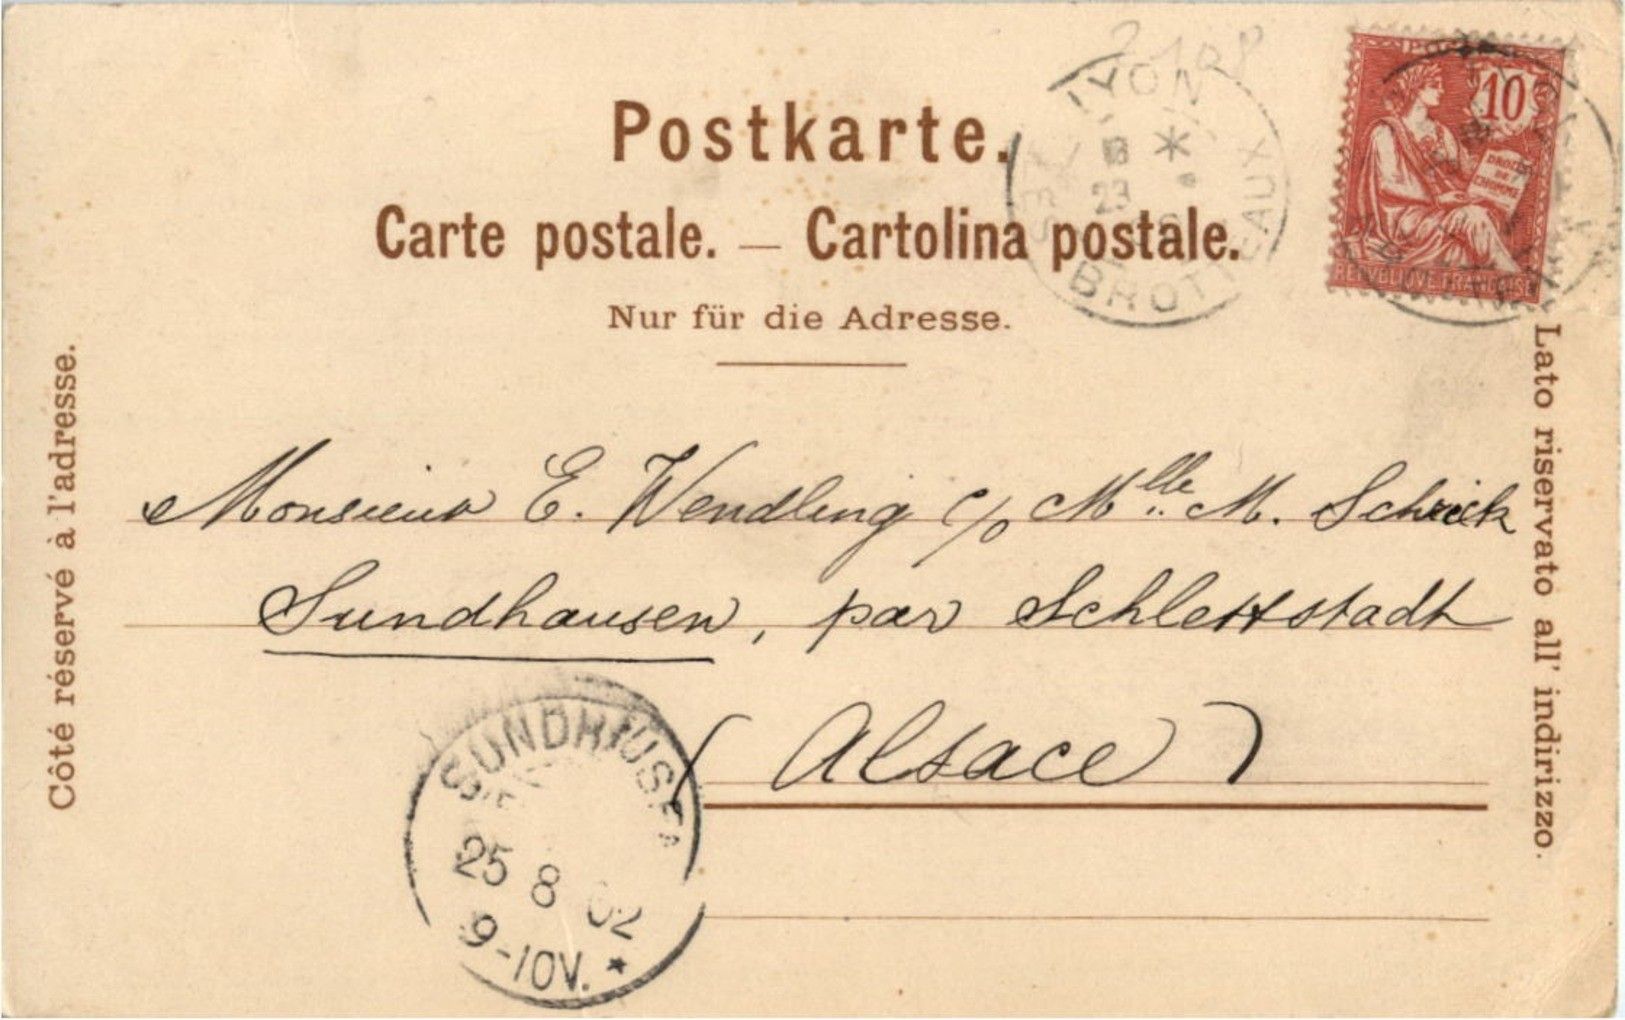 Postkarte.
Carte postale. — Cartolina postale.
Nur für die Adresse.
Côté réservé à l'adresse.
Lato riservato all' indirizzo.
LYON
BROTTEAUX
10
DROITS
DE
L'HOMME
REPUBLIQUE FRANÇAISE
Monsieur E. Wendling c/o Mlle M. Schick
Sundhausen, par Schlettstadt
(Alsace)
SUNDHAUSEN
25 8 02
9-10V. *